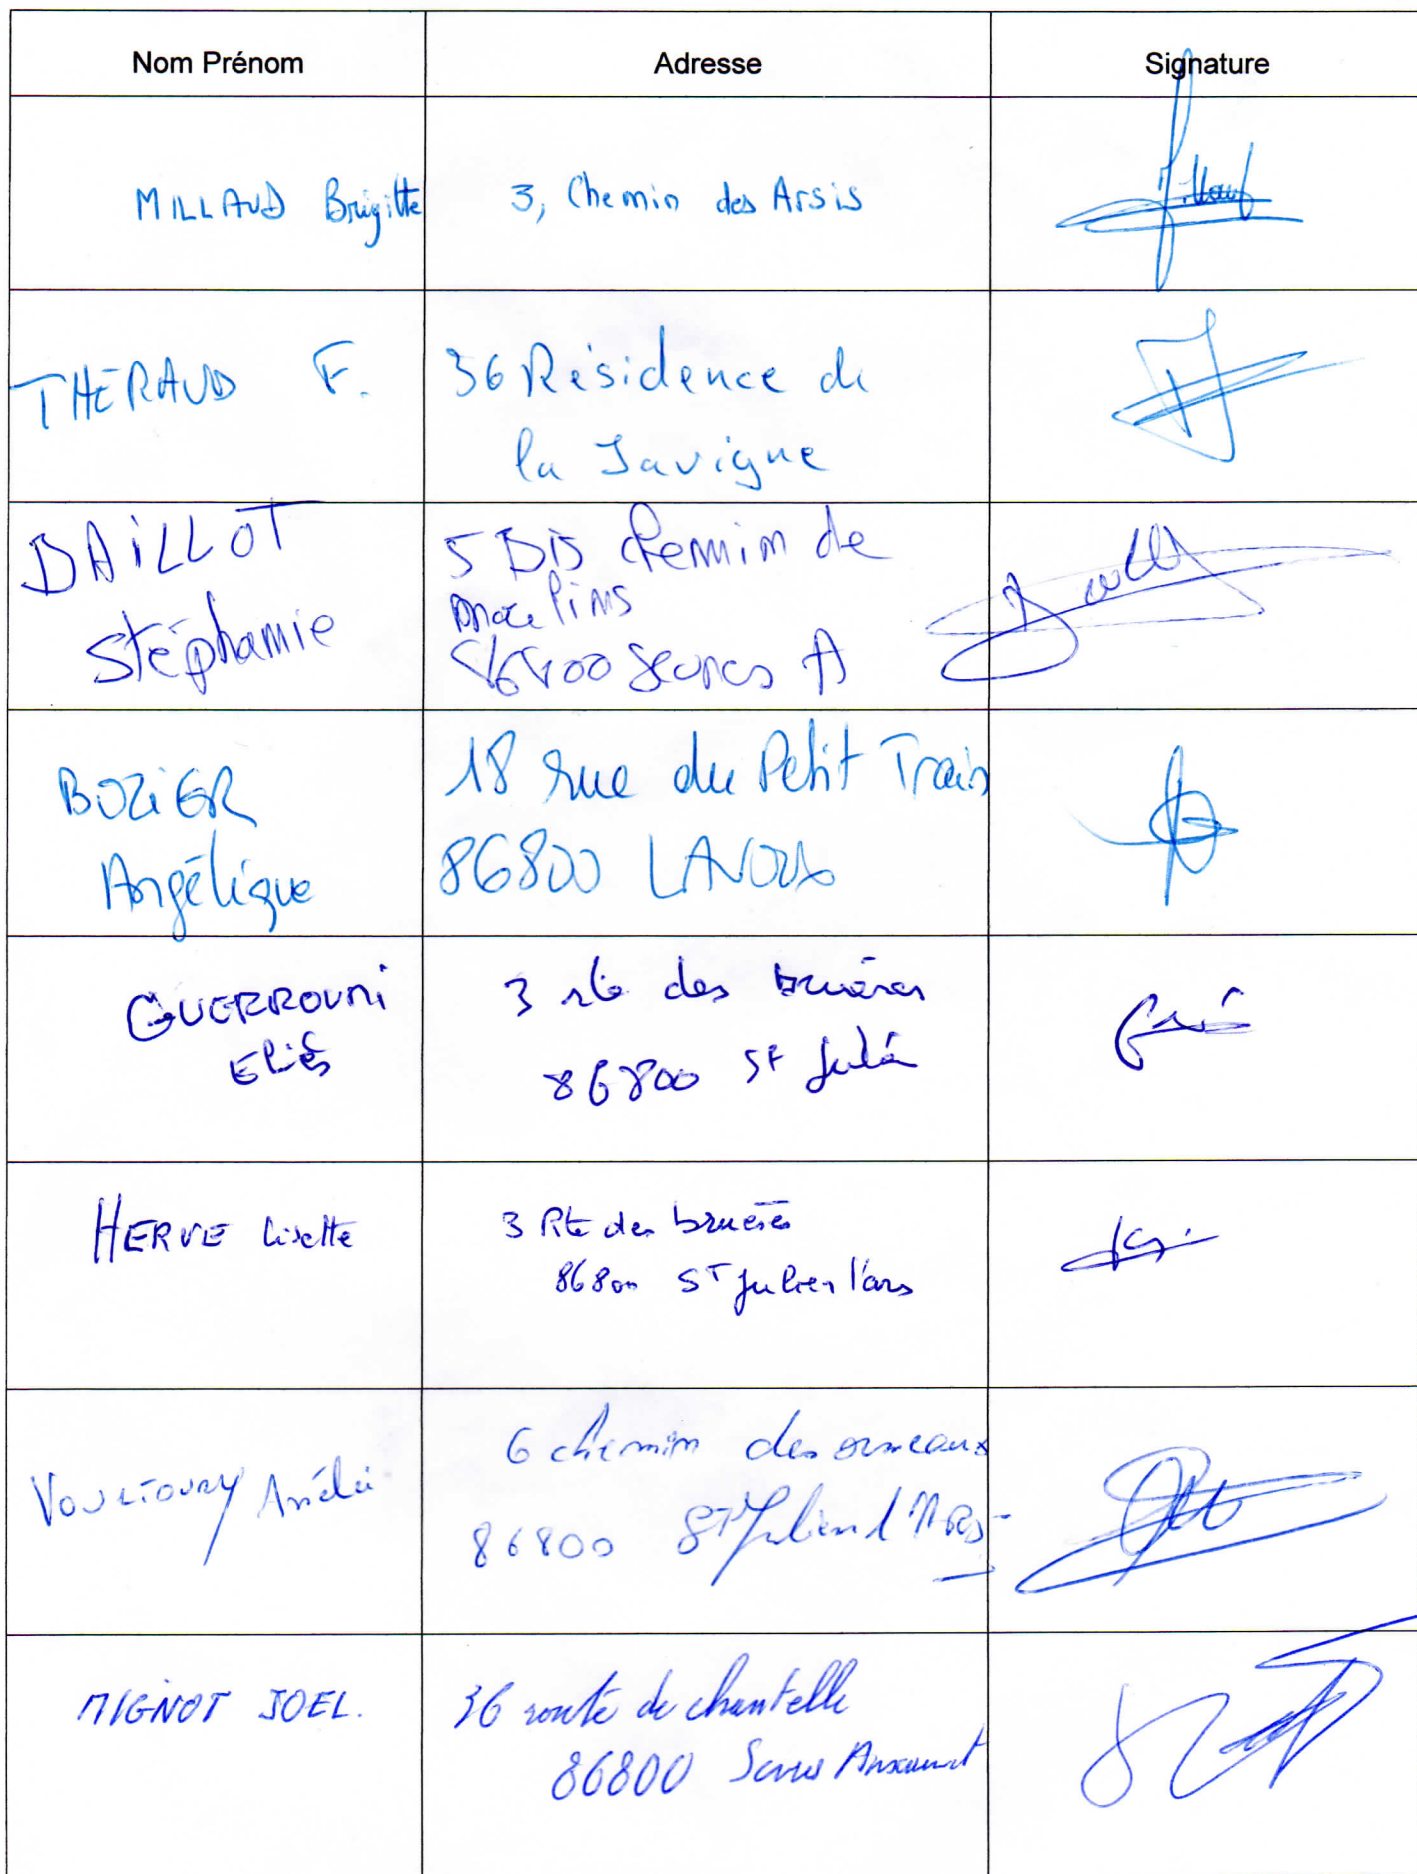 Nom Prénom Adresse Signature
MILLAUD Brigitte 3, Chemin des Arsis
THERAUD F. 36 Résidence de
la Javigne
BAILLOT 5 BIS chemin de
Stéphanie
86800 Sevres A
BOZIER 18 rue du Petit Train
Angélique 86800 LAVOUX
GUERROUMI 3 rte des bruères
Eliès 86800 St Julien
HERVE Lisette 3 Rte des bruères
86800 ST Julien l'ars
6 chemin des ormeaux
86800 ST Julien l'ARS
MIGNOT JOEL. 36 route de chantelle
86800 Sevres Anxaumont